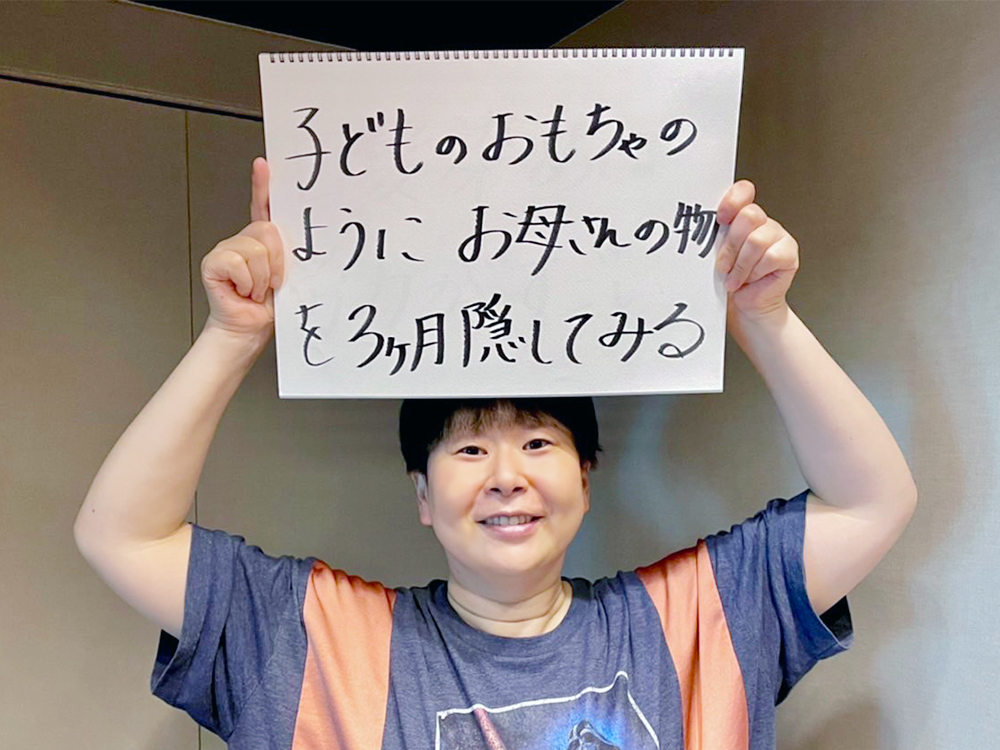 子どものおもちゃの
ように お母さんの物
を3ヶ月隠してみる